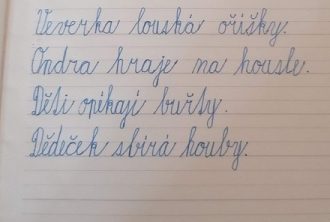 Veverka louská oříšky.
Ondra hraje na housle.
Děti opékají buřty.
Dědeček sbírá houby.